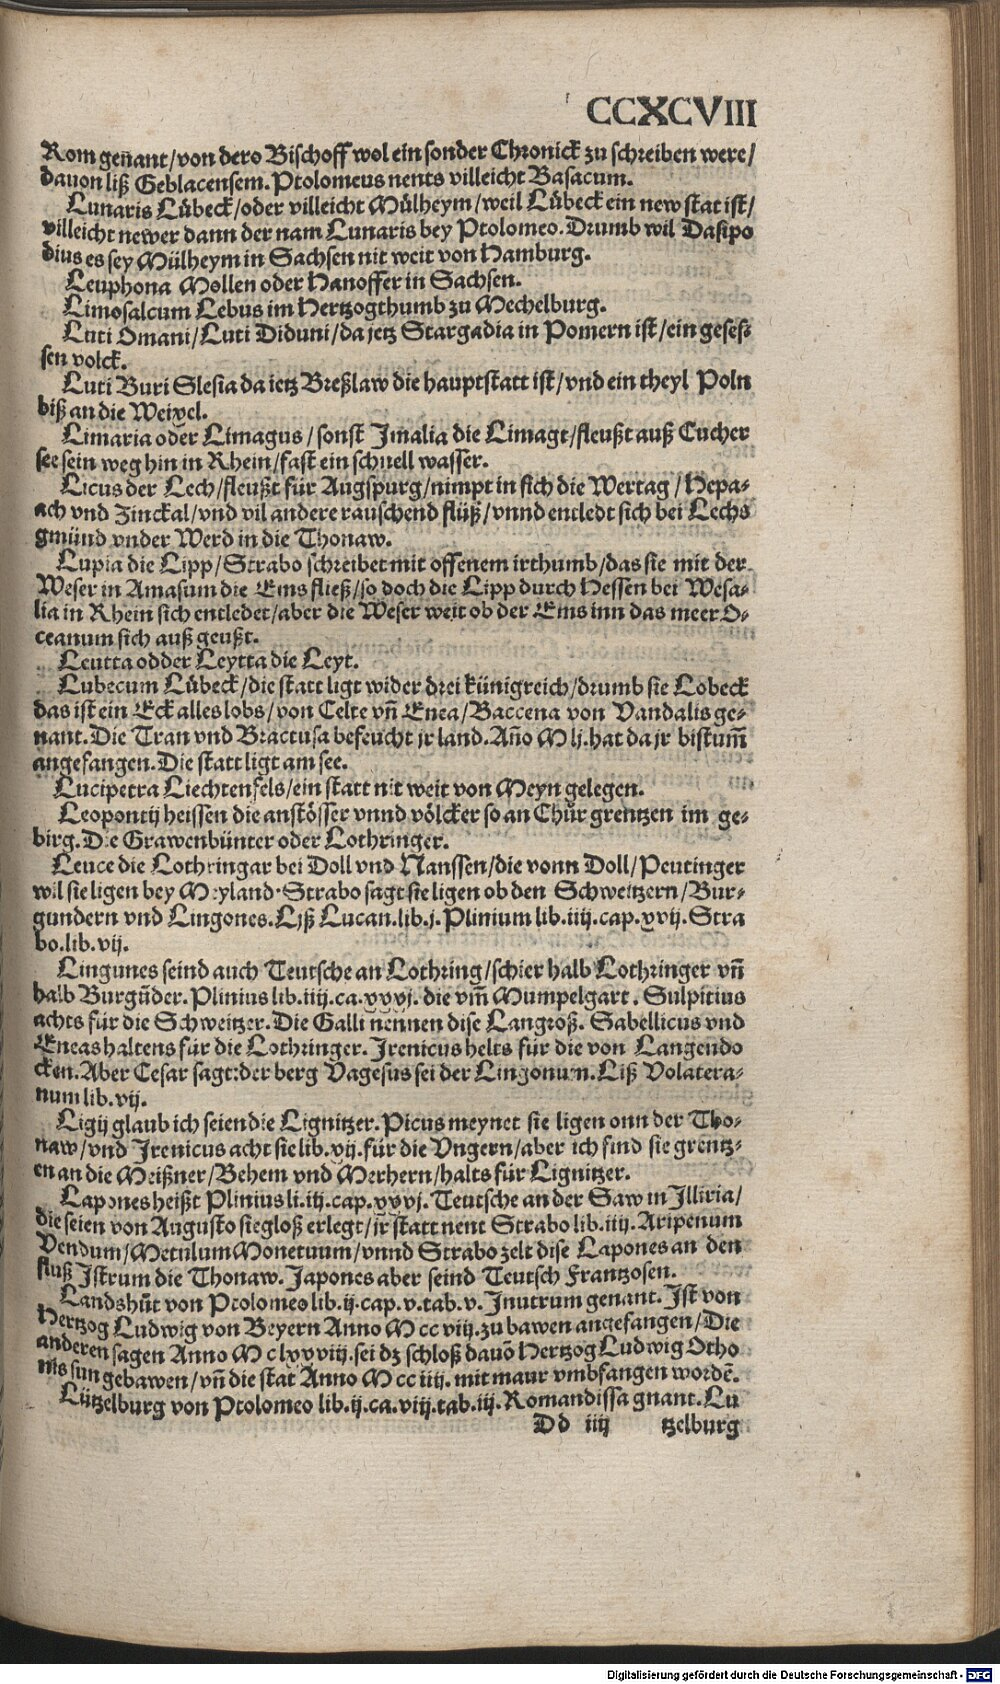 CCXCVIII
Rom geñant/von dero Bischoff wol ein sonder Chronick zu schreiben were/
dauon liß Geblacensem. Ptolomeus nents villeicht Basacum.
Lunaris Lübeck/oder villeicht Mülheym/weil Lübeck ein new stat ist/
villeicht newer dann der nam Lunaris bey Ptolomeo. Drumb wil Dasipo
dius es sey Mülheym in Sachsen nit weit von Hamburg.
Leuphona Mollen oder Hanoffer in Sachsen.
Limosalcum Lebus im Hertzogthumb zu Mechelburg.
Luti Omani/Luti Diduni/da jetz Stargadia in Pomern ist/ein geses⸗
sen volck.
Luti Buri Slesia da ietz Breßlaw die hauptstatt ist/vnd ein theyl Poln
biß an die Weixel.
Limaria oder Limagus/sonst Jmalia die Limagt/fleußt auß Eucher
see sein weg hin in Rhein/fast ein schnell wasser.
Licus der Lech/fleußt für Augspurg/nimpt in sich die Wertag/Hepa⸗
ach vnd Zinckal/vnd vil andere rauschend flüß/vnnd entledt sich bei Lechs
gmünd vnder Werd in die Thonaw.
Lupia die Lipp/Strabo schreibet mit offenem irthumb/das sie mit der
Weser in Amasum die Ems fließ/so doch die Lipp durch Hessen bei Wesa⸗
lia in Rhein sich entledet/aber die Weser weit ob der Ems inn das meer O⸗
ceanum sich auß geußt.
Leutta odder Leytta die Leyt.
Lubecum Lübeck/die statt ligt wider drei künigreich/drumb sie Lobeck
das ist ein Eck alles lobs/von Celte vñ Enea/Baccena von Vandalis ge⸗
nant. Die Tran vnd Bractusa befeucht jr land. Año M lj. hat da jr bistum̃
angefangen. Die statt ligt am see.
Lucipetra Liechtenfels/ein statt nit weit von Meyn gelegen.
Leopontij heissen die anstösser vnnd völcker so an Chür grentzen im ge⸗
birg. Die Grawenbünter oder Lothringer.
Leuce die Lothringar bei Doll vnd Nanssen/die vonn Doll/Peutinger
wil sie ligen bey Meyland. Strabo sagt sie ligen ob den Schweitzern/Bur⸗
gundern vnd Lingones. Liß Lucan. lib. j. Plinium lib. iiij. cap. xvij. Stra
bo. lib. vij.
Lingunes seind auch Teutsche an Lothring/schier halb Lothringer vñ
halb Burgũder. Plinius lib. iiij. ca. xxxj. die vm̃ Mumpelgart. Sulpitius
achts für die Schweitzer. Die Galli nennen dise Langroß. Sabellicus vnd
Eneas haltens für die Lothringer. Jrenicus helts für die von Langendo
cken. Aber Cesar sagt: der berg Vagesus sei der Lingonum. Liß Volatera⸗
num lib. vij.
Ligij glaub ich seien die Lignitzer. Picus meynet sie ligen onn der Tho⸗
naw/vnd Jrenicus acht sie lib. vij. für die Vngern/aber ich find sie grentz⸗
en an die Meißner/Behem vnd Merhern/halts für Lignitzer.
Lapones heißt Plinius li. iij. cap. xxvj. Teutsche an der Saw in Jlliria/
die seien von Augusto sieglo­ß erlegt/jr statt nent Strabo lib. iiij. Aripenum
Vendum/Metulum Monetuum/vnnd Strabo zelt dise Lapones an den
fluß Jstrum die Thonaw. Japones aber seind Teutsch Frantzosen.
Landshũt von Ptolomeo lib. ij. cap. v. tab. v. Jnutrum genant. Jst von
Hertzog Ludwig von Beyern Anno M cc viij. zu bawen angefangen/Die
anderen sagen Anno M c lxxviij. sei dz schloß dauõ Hertzog Ludwig Otho
nis sun gebawen/vñ die stat Anno M cc iiij. mit maur vmbfangen wordẽ.
Lützelburg von Ptolomeo lib. ij. ca. viij. tab. iij. Romandissa gnant. Lu
Dd iiij tzelburg
Digitalisierung gefördert durch die Deutsche Forschungsgemeinschaft - DFG